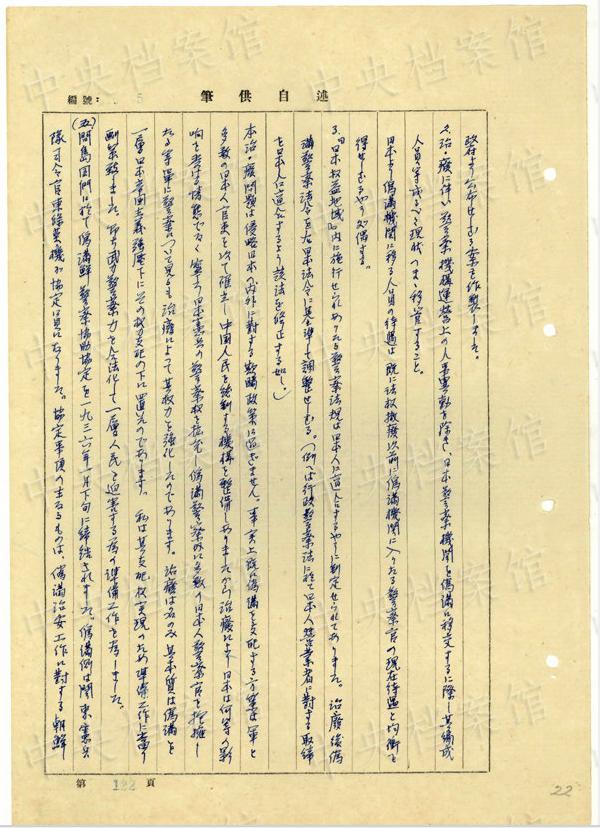 述自供筆
編號：
5
略より公布せしむる案を作製しました。
2、治・廃に伴い警察機構運営上の人事異動を除き、日本警察機関を偽満に移交するに際し其編成
人員等成るべく現状のまま移管すること。
日本より偽満機関に移る人員の待遇は既に法权撤廃以前に偽満機関に入りたる警察官の現在待遇と均衡を
得せしむるやう処置する。
3、日本权益地域内に施行せられありたる警察法規は日本人に適合するやうに制定せられてありました。治廃後偽
満警察法令を日本法令に基準して調整せしむる。（例へば行政警察法に於て日本人営業者に対する取締
を日本人に適合するよう該法を修正する如し。）
本治・廃問題は侵略日本の内外に対する欺瞞政策に過ぎません。事実上既に偽満を支配する方策は軍と
多数の日本人官吏を以て確立し中国人民を統制する機構を整備しありましたから治廃により日本は何等の影
響を受ける情態でなく寧ろ日本憲兵の警察权を拡充し偽満警察外に多数の日本人警察官を抱擁し
たる等単に警察について見るも治廃によって其权力を強化したのであります。治廃は名のみ其本質は偽満を
一層日本帝国主義強圧下にその权支配の下に置いたのであります。私は其支配权実現のため準備工作に当り
画策致しました。即ち武力警察力を合法化して一層人民を迫害する為の準備工作を为しました。
(五)間島図們に於て偽満鮮警察協助協定を一九三六年一月下旬に締結されました。偽満側は関東憲兵
隊司令官東條英機が協定員になりました。協定事項の主なるものは、偽満治安工作に対する朝鮮
第 122 頁
22
中央档案馆